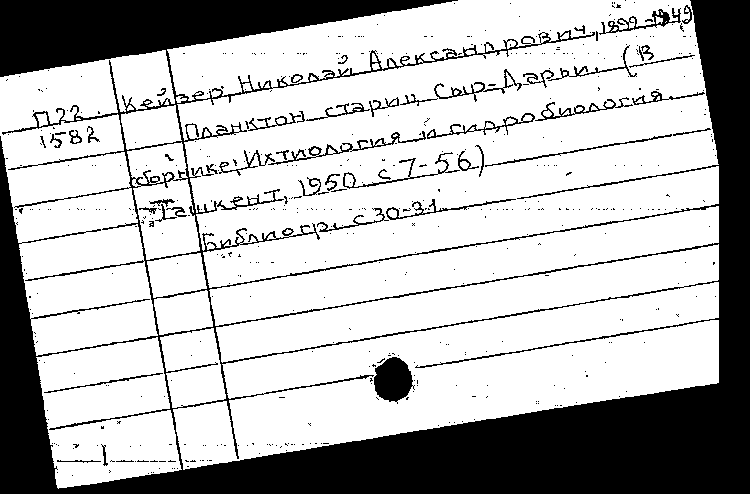 Кейзер, Николай Александрович, 1899-1949
П22
1582
Планктон стариц Сыр-Дарьи. (В
сборнике: Ихтиология и гидробиология.
Ташкент, 1950 с 7-56)
Библиогр. с 30-31
1